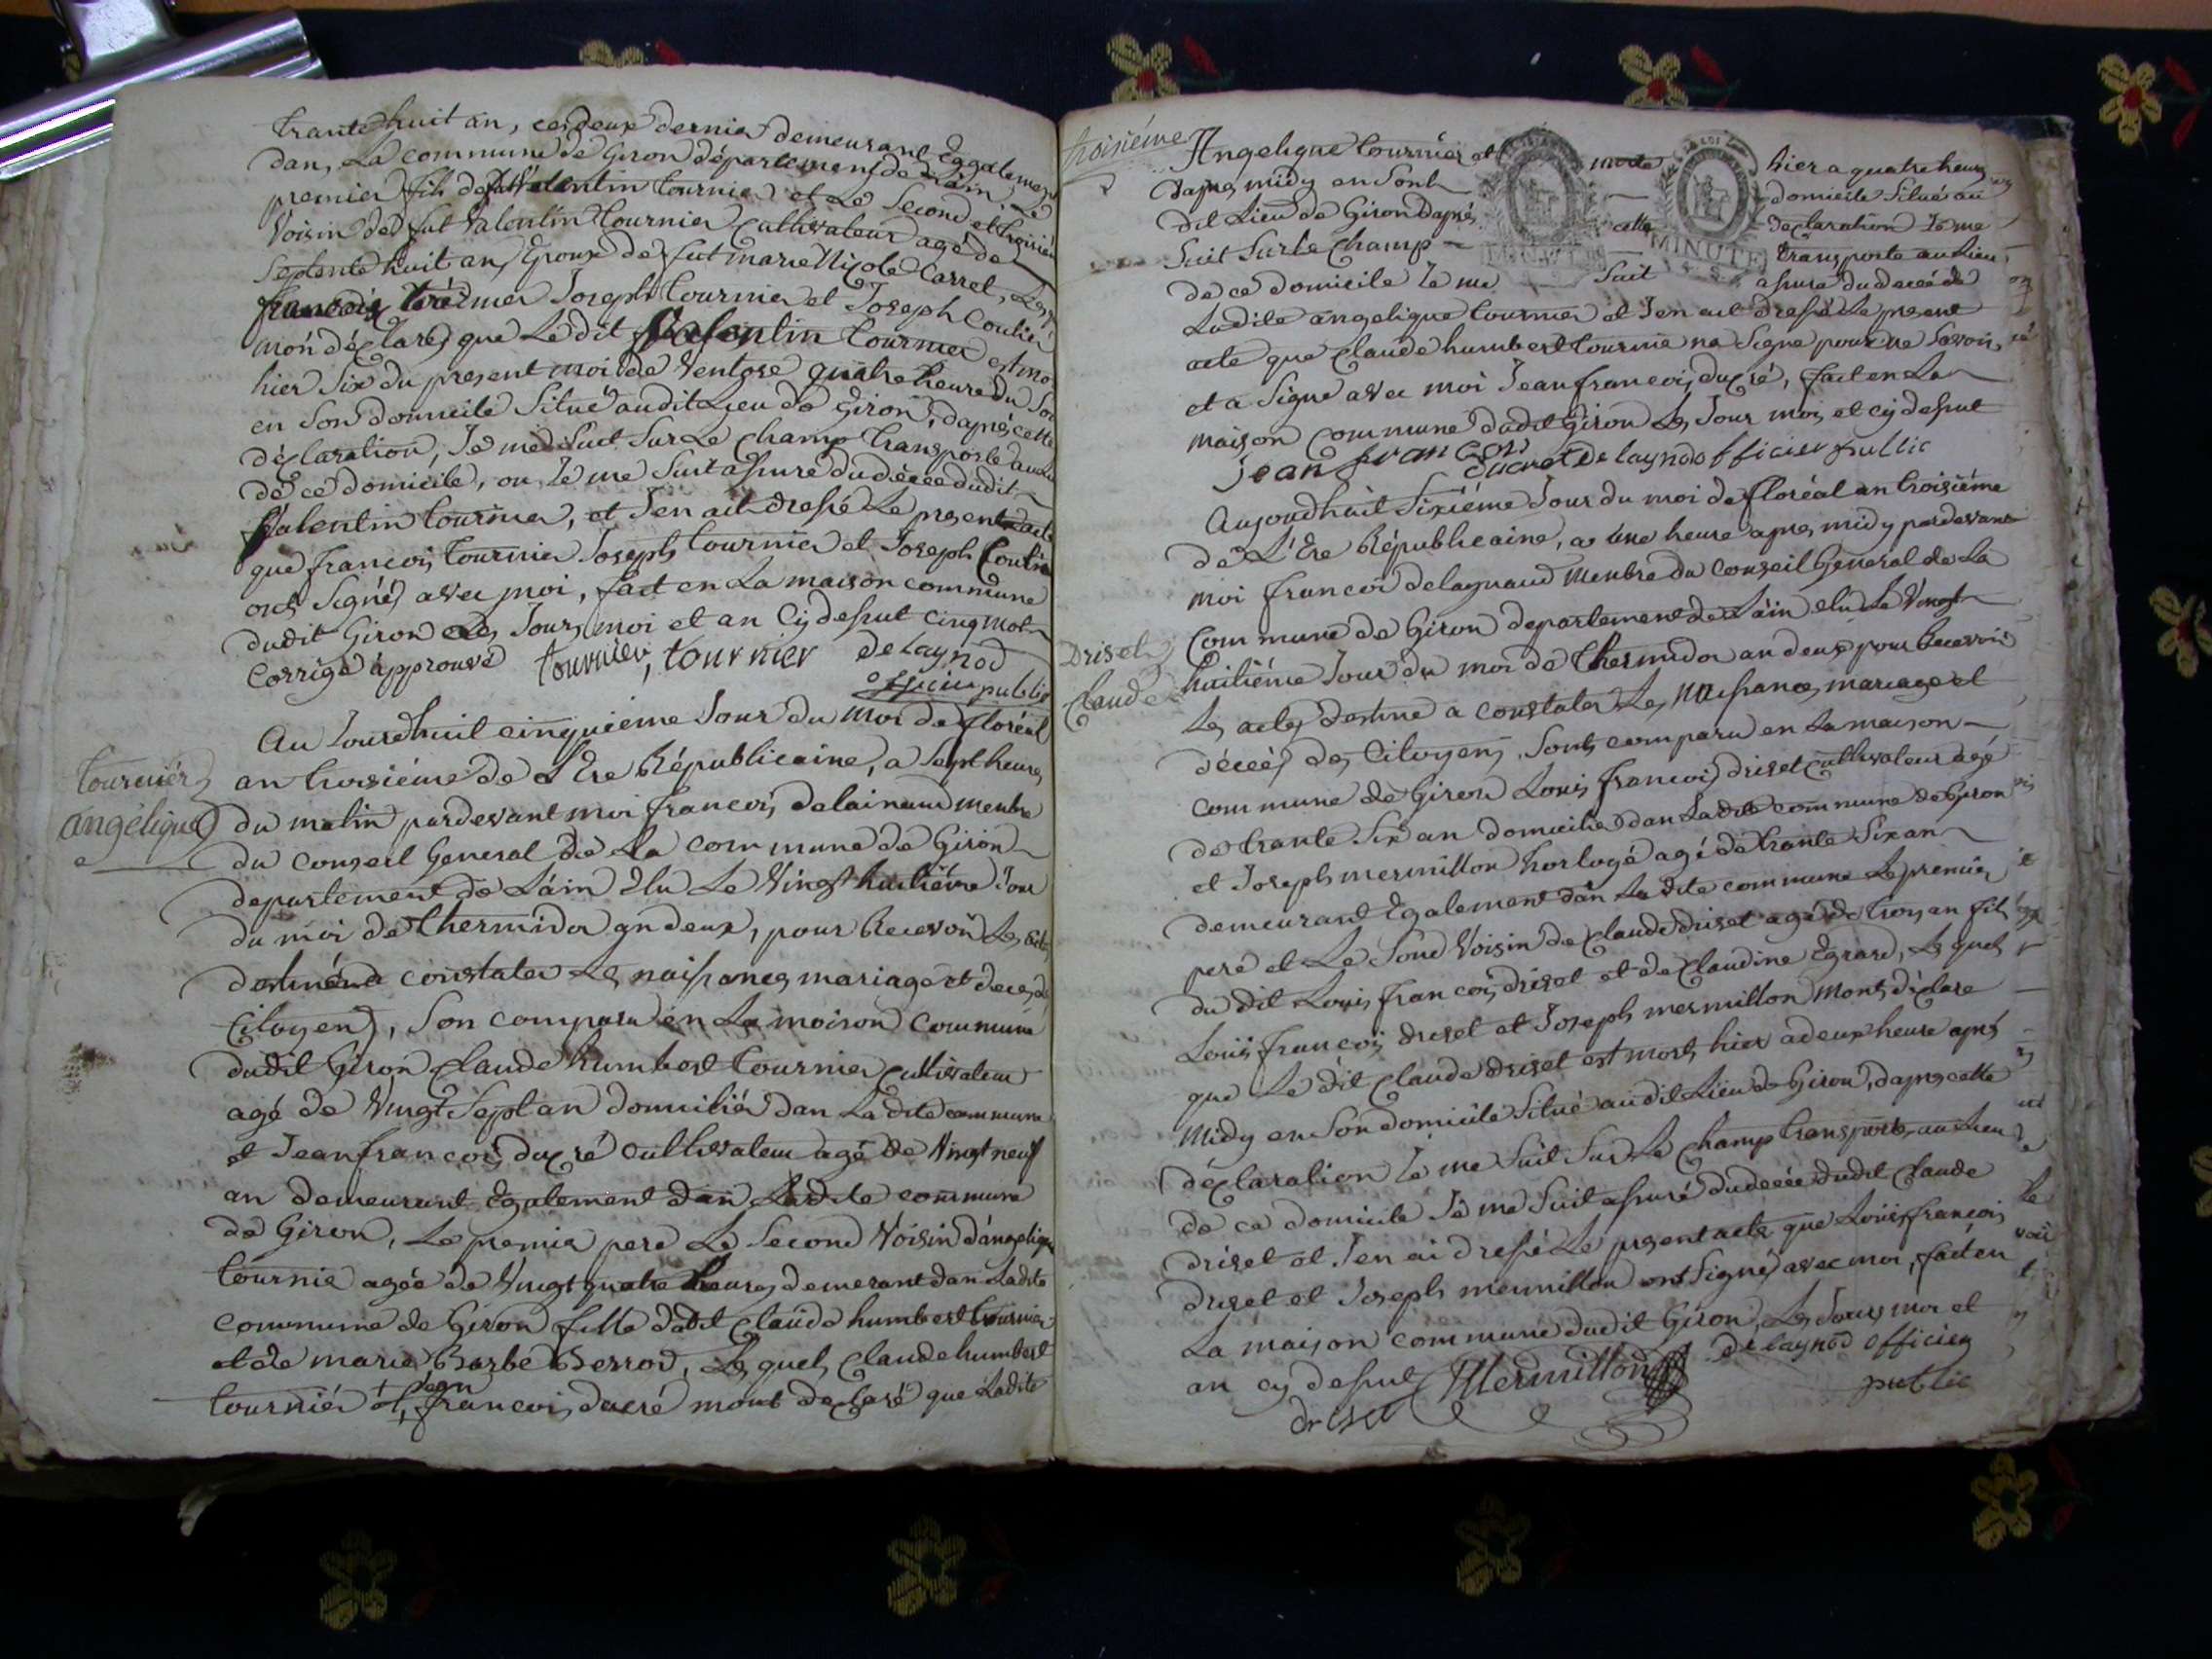 trante huit an, ces deux dernier demeurant Eggalement
dan, La commune de Giron département de Lain, Le
premier fils de Valentin tournier et Le Second et troisiem
Voisin de fut Valentin tournier Cultivateur agé de
Septente huit an, Epoux de fut marie Nicole Carret, Les
francois tournier Joseph tournier et Joseph Coutier
mon déclaré que Le dit Valentin tournier est mo
hier Six du present moi de Ventose quatre heure du Soi
en Son domicile Situé audit Lieu de Giron, daprés cette
déclaration, Je me Suit Sur Le champ transporte au Lieu
de ce domicile, ou Je me Suit assure du décée dudit
Valentin tournier, et J'en ait dressé Le present acte
que francois tournier Joseph tournier et Joseph Coutier
ont Signé avec moi, fait en La maison commune
dudit Giron Les Jour, moi et an Cy dessut cinq mot
Corrigé approuvé tournier, tournier delaynod
officier public
Au Jourdhuit cinquieme Jour du moi de floréal
tournier
an troisiéme de L'Ere Républicaine, a Sept heures
angelique
du matin pardevant moi francois delainaud menbre
du conseil General de La commune de Giron
departement de Láin Elu Le Vingt huitième Jour
du moi de thermidor an deux, pour Recevoir Les acte
destiné a constater Les naissances mariage et deces de
Citoyen, Son comparu en La maison commune
dudit Giron Claude humbert tournier Cultivateur
agé de Vingt Sept an domicilié dan La dite commune
et Jean francois ducré cultivateur agé de Vingt neuf
an demeurant Egalement dan Ladite commune
de Giron, Le premier pere Le Second Voisin dángelique
tournie agée de Vingt quatre heures demerant dan Ladite
Commune de Giron fille dudit Claude humbert tournier
et de marie Barbe Berrod, Les quels Claude humbert
tournier et, Jean francois ducré mont declaré que Ladite
troisiéme
Angelique tournier et morte hier a quatre heures
dapres midy en Sont domicile Situé au
dit Lieu de Giron daprés cette declaration Je me
Suit Sur le Champ transporte au Lieu
de ce domicile Je me Suit assure du decée de
Ladite angelique tournier et J'en ait dressé Le present
acte que Claude humbert tournie na Signe pour ne Savoir,
et a Signe avec moi Jean francois ducré, fait en La
maison commune dudit Giron Les Jour moi, et cy dessut
jean francois ducret Delaynod officier public
MINUTE
Aujourdhuit Sixiéme Jour du moi de floréal an troisiéme
de L'Ere Républicaine, a une heure apres midy pardevant
moi francoi delagnaud menbre du conseil General de La
Commune de Giron departement de Láin elu Le Vingt
Driset
huitiéme Jour du moi de thermidor an deux pour Recevoir
Claude
Les actes destiné a constater Les Naissance, mariage et
décéé, des Citoyens, Sont, comparu en La maison
commune de Giron Louis francois driset Cultivateur agé
de trante Six an domicilié dan Ladite commune de Giron
et Joseph mermillon horlogé agé de trante Six an
demeurant Egalement dan La dite commune Le premier
peré et Le Sond Voisin de Claude driset agé de troy, an fils
du dit Louis francois driset et de Claudine Egrard, Les quels
Louis francois driset et Joseph mermillon mont, déclare
que Le dit Claude driset est mort, hier a deux heure aprés
Midy en Son domicile Situé audit Lieu de Giron, dapres cette
déclaration Je me Suit Sur Le champ transporte, au Lieu
de ce domicile Je me Suit assuré du decée dudit Claude
driset et J'en ai dressé Le present acte que Louis francois
driset et Joseph mermillon ont Signé avec moi, fait en
La maison commune dudit Giron, Les Jours moi et
an cy dessut Mermillon delaynod officier
driset public